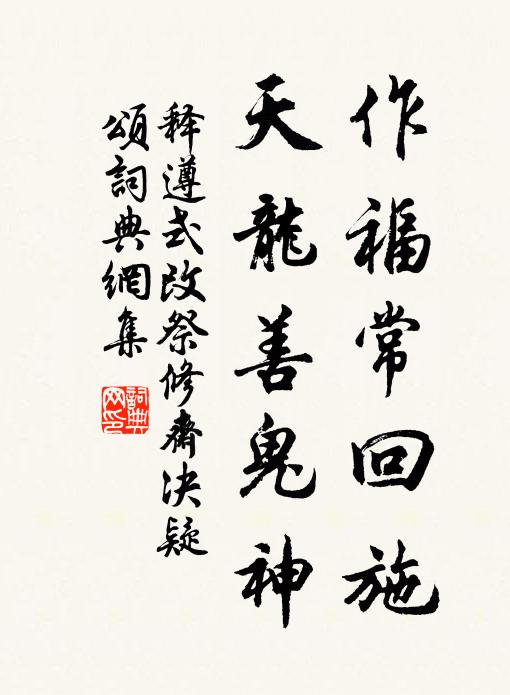 作福常回施
天龍善鬼神
释遵式改祭修齋决疑
頌詞典網集
詞典
网印